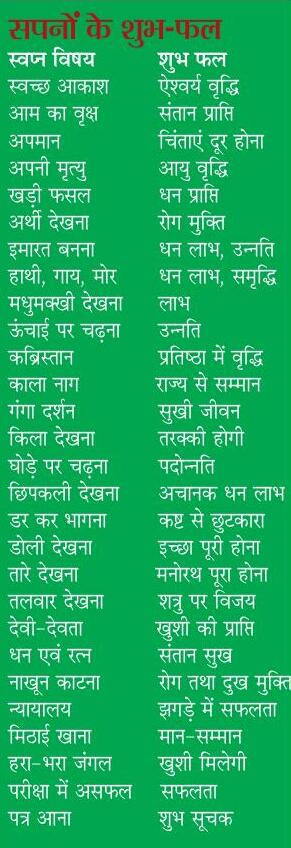 सपनों के शुभ-फल
स्वप्न विषय शुभ फल
स्वच्छ आकाश ऐश्वर्य वृद्धि
आम का वृक्ष संतान प्राप्ति
अपमान चिंताएं दूर होना
अपनी मृत्यु आयु वृद्धि
खड़ी फसल धन प्राप्ति
अर्थी देखना रोग मुक्ति
इमारत बनना धन लाभ, उन्नति
हाथी, गाय, मोर धन लाभ, समृद्धि
मधुमक्खी देखना लाभ
ऊंचाई पर चढ़ना उन्नति
कब्रिस्तान प्रतिष्ठा में वृद्धि
काला नाग राज्य से सम्मान
गंगा दर्शन सुखी जीवन
किला देखना तरक्की होगी
घोड़े पर चढ़ना पदोन्नति
छिपकली देखना अचानक धन लाभ
डर कर भागना कष्ट से छुटकारा
डोली देखना इच्छा पूरी होना
तारे देखना मनोरथ पूरा होना
तलवार देखना शत्रु पर विजय
देवी-देवता खुशी की प्राप्ति
धन एवं रत्न संतान सुख
नाखून काटना रोग तथा दुख मुक्ति
न्यायालय झगड़े में सफलता
मिठाई खाना मान-सम्मान
हरा-भरा जंगल खुशी मिलेगी
परीक्षा में असफल सफलता
पत्र आना शुभ सूचक